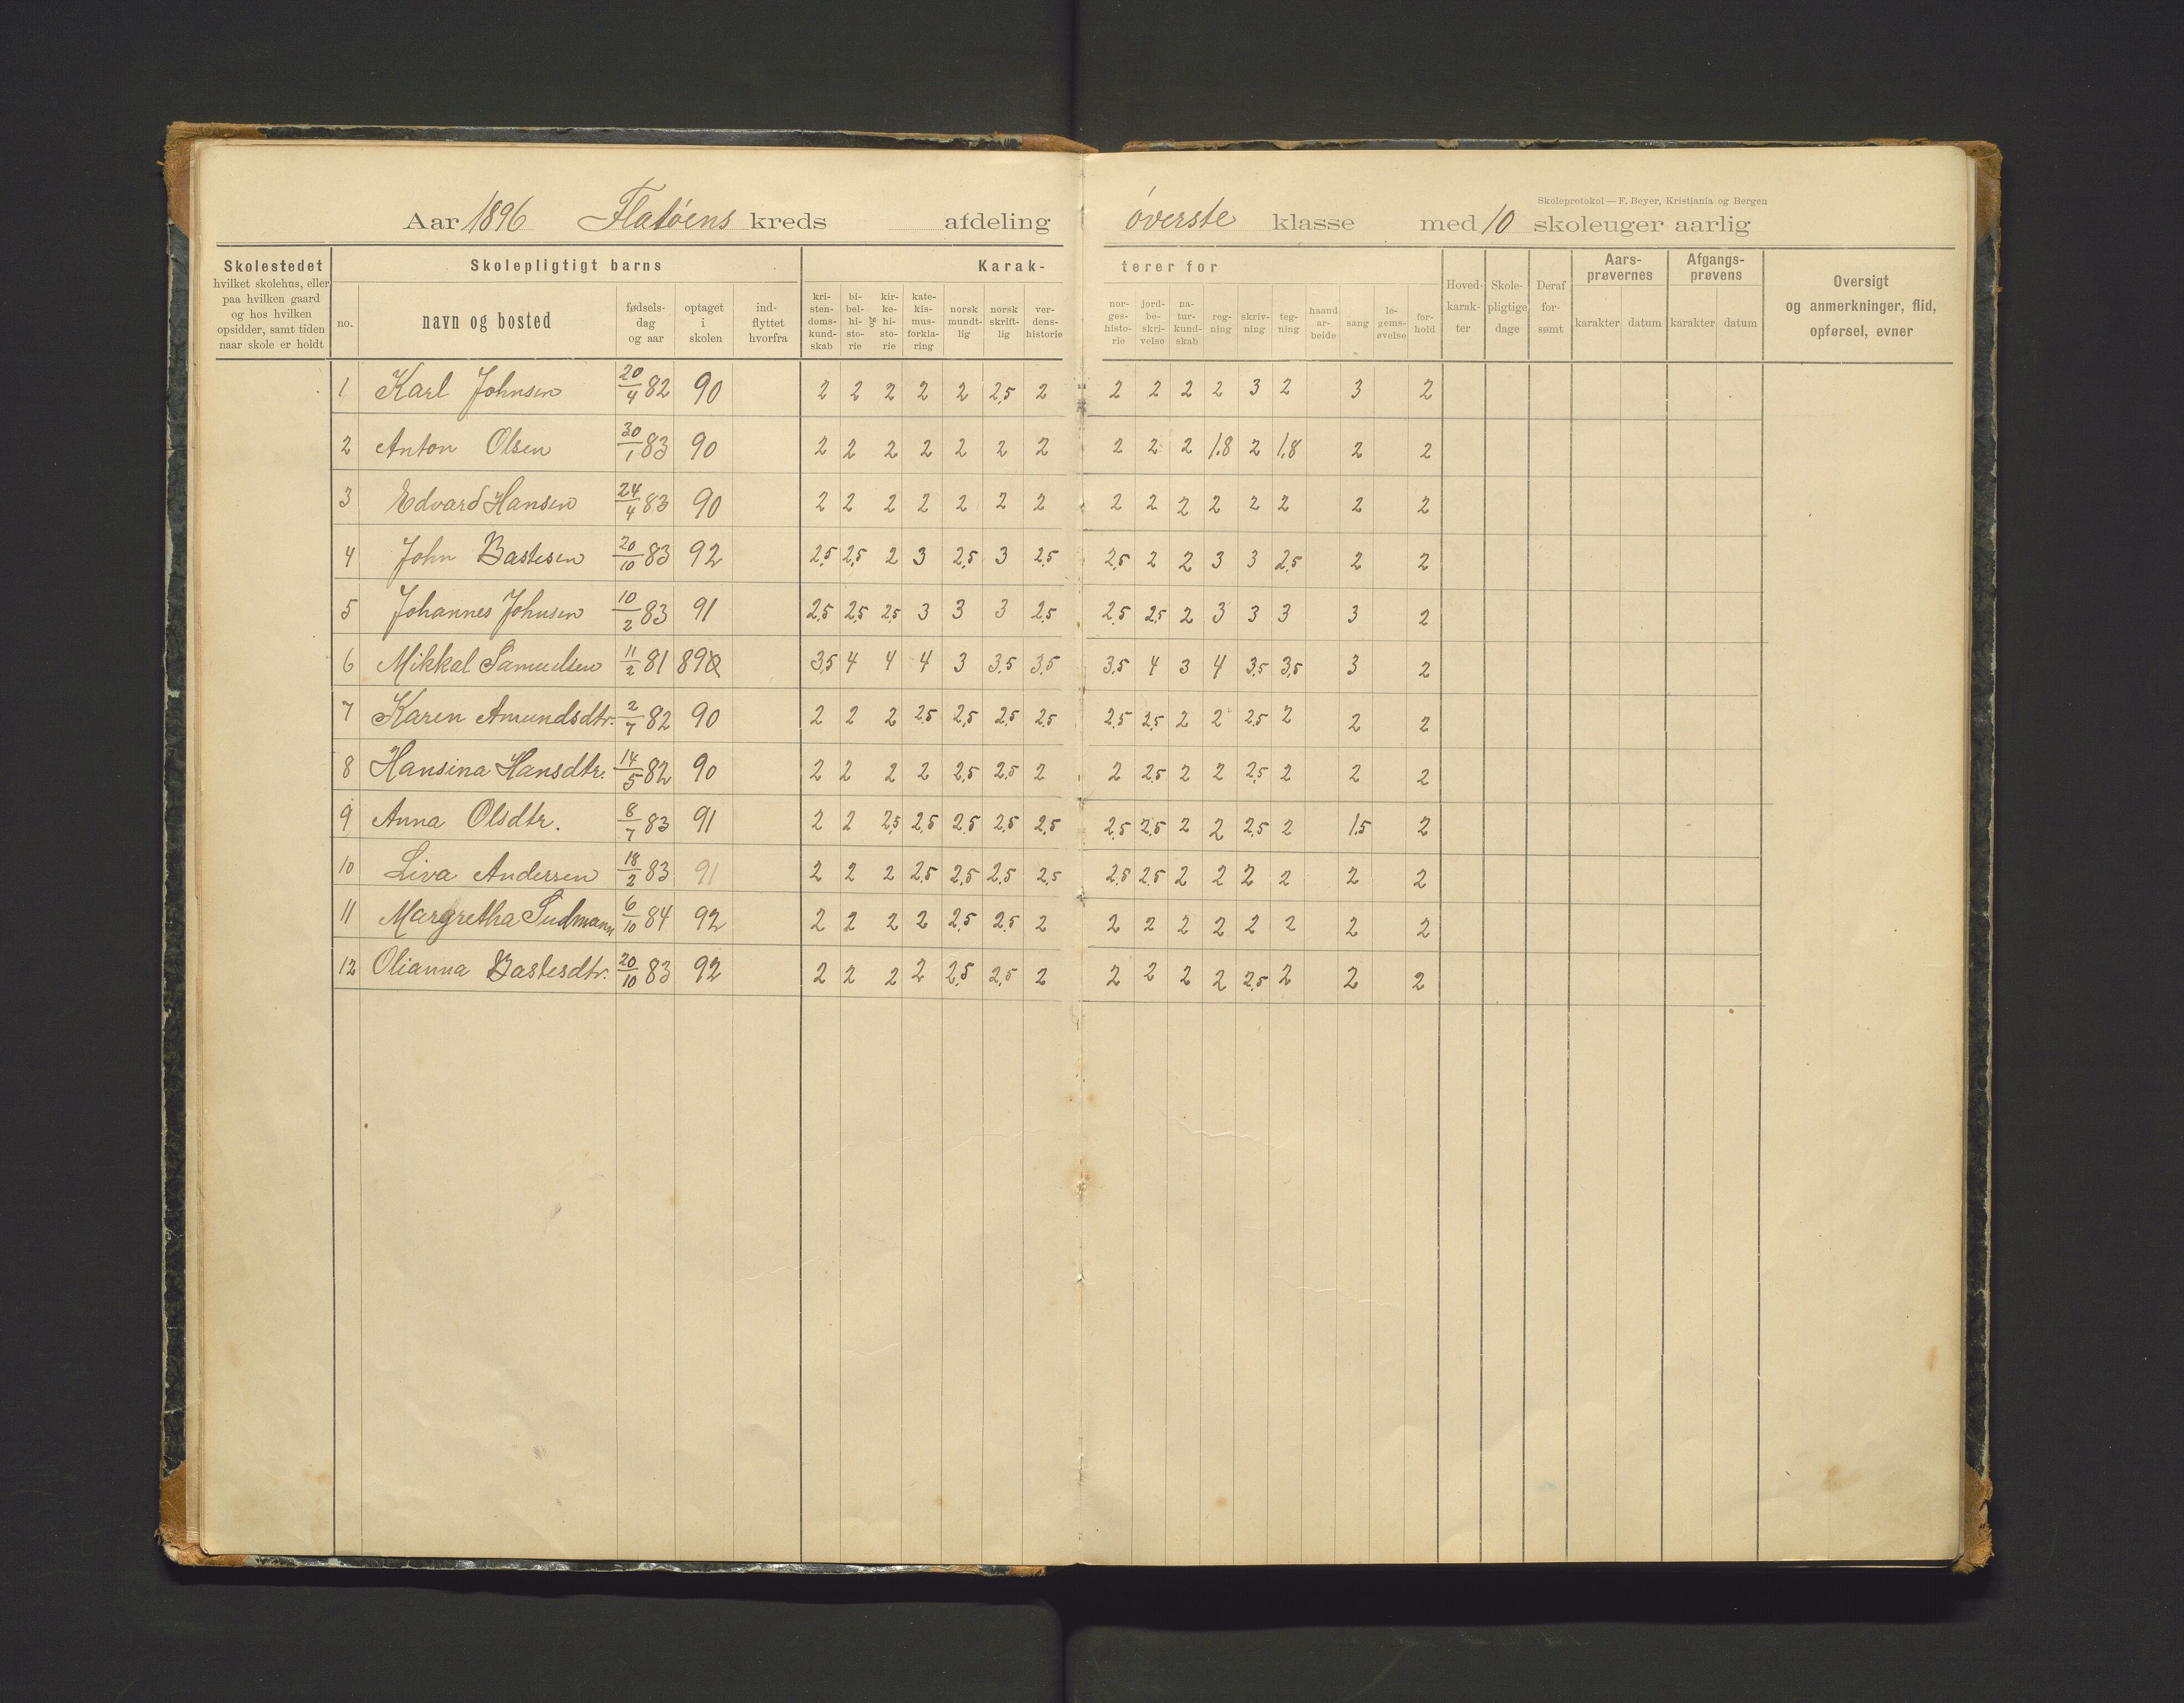 Skoleprotokol — F. Beyer, Kristiania og Bergen
Aar 1896 Flatöens kreds afdeling överste klasse med 10 skoleuger aarlig
Skolestedet hvilket skolehus, eller paa hvilken gaard og hos hvilken opsidder, samt tiden naar skole er holdt
Skolepligtigt barns
no. navn og bosted fødselsdag og aar optaget i skolen indflyttet hvorfra
Karakterer for
kristendomskundskab bibelhistorie og kirkehistorie katekismusforklaring norsk mundtlig norsk skriftlig verdenshistorie norgeshistorie jordbeskrivelse naturkundskab regning skrivning tegning haandarbeide sang legemsøvelse forhold
Hovedkarakter Skolepligtige dage Deraf forsømt
Aarsprøvernes karakter datum
Afgangsprøvens karakter datum
Oversigt og anmerkninger, flid, opførsel, evner
1 Karl Johnsen 20/4 82 90 2 2 2 2 2 2,5 2 2 2 2 2 3 2 3 2
2 Anton Olsen 30/1 83 90 2 2 2 2 2 2 2 2 2 2 1,8 2 1,8 2 2
3 Edvard Hansen 24/4 83 90 2 2 2 2 2 2 2 2 2 2 2 2 2 2 2
4 John Bastesen 20/10 83 92 2,5 2,5 2 3 2,5 3 2,5 2,5 2 2 3 3 2,5 2 2
5 Johannes Johnsen 10/2 83 91 2,5 2,5 2,5 3 3 3 2,5 2,5 2,5 2 3 3 3 3 2
6 Mikkal Samuelsen 11/2 81 89 3,5 4 4 4 3 3,5 3,5 3,5 4 3 4 3,5 3,5 3 2
7 Karen Amundsdtr. 2/7 82 90 2 2 2 2,5 2,5 2,5 2,5 2,5 2,5 2 2 2,5 2 2 2
8 Hansina Hansdtr. 14/5 82 90 2 2 2 2 2,5 2,5 2 2 2,5 2 2 2,5 2 2 2
9 Anna Olsdtr. 8/7 83 91 2 2 2,5 2,5 2,5 2,5 2,5 2,5 2,5 2 2 2,5 2 1,5 2
10 Liva Andersen 18/2 83 91 2 2 2 2,5 2,5 2,5 2,5 2,5 2,5 2 2 2 2 2 2
11 Margretha Sudmann 6/10 84 92 2 2 2 2 2,5 2,5 2 2 2 2 2 2 2 2 2
12 Olianna Bastesdtr. 20/10 83 92 2 2 2 2 2,5 2,5 2 2 2 2 2 2,5 2 2 2